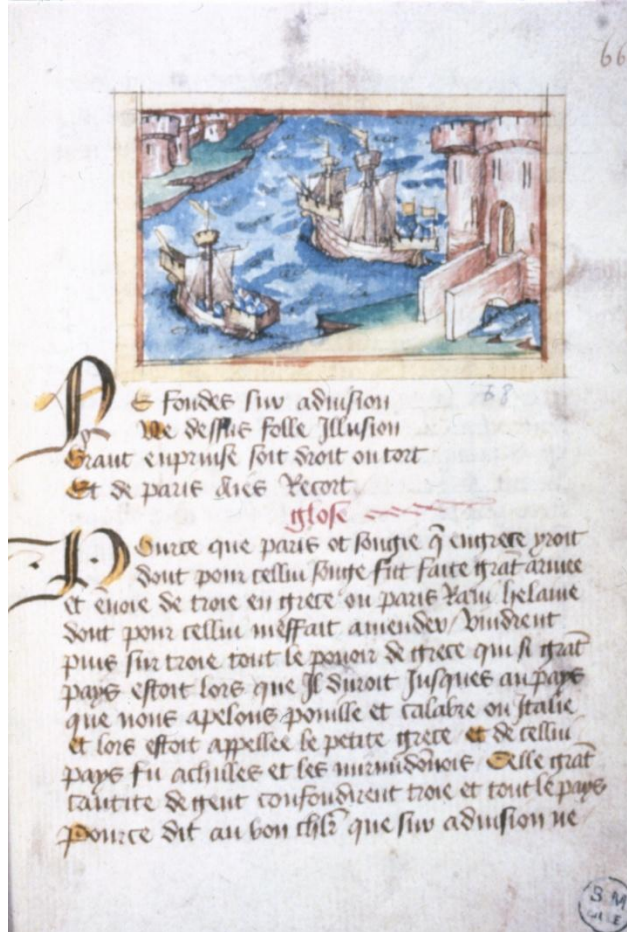 66
68
Ne fondes sur aduision
Ne dessus folle Illusion
Grant enprinse soit droit ou tort
Et de paris aies Recort
glose
Pource que paris ot songie q̃ en grece yroit
dont pour cellui songe fut faite grãt armee
et ẽuoie de troie en grece ou paris Raui helaine
dont pour cellui meffait amender / vindrent
puis sur troie tout le pouoir de grece qui si grãt
pays estoit lors que Il duroit Jusques au pays
que nous apelons pouille et calabre ou Italie
et lors estoit appellee le petite grece / et de cellui
pays fu achilles et les mirmidonois / Celle grãt
cantite de gent confondirent troie et tout le pays
Pource dit au bon chl̃r que sur aduision ne
B M
LILLE